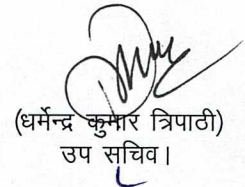 (धर्मेन्द्र कुमार त्रिपाठी)
उप सचिव।